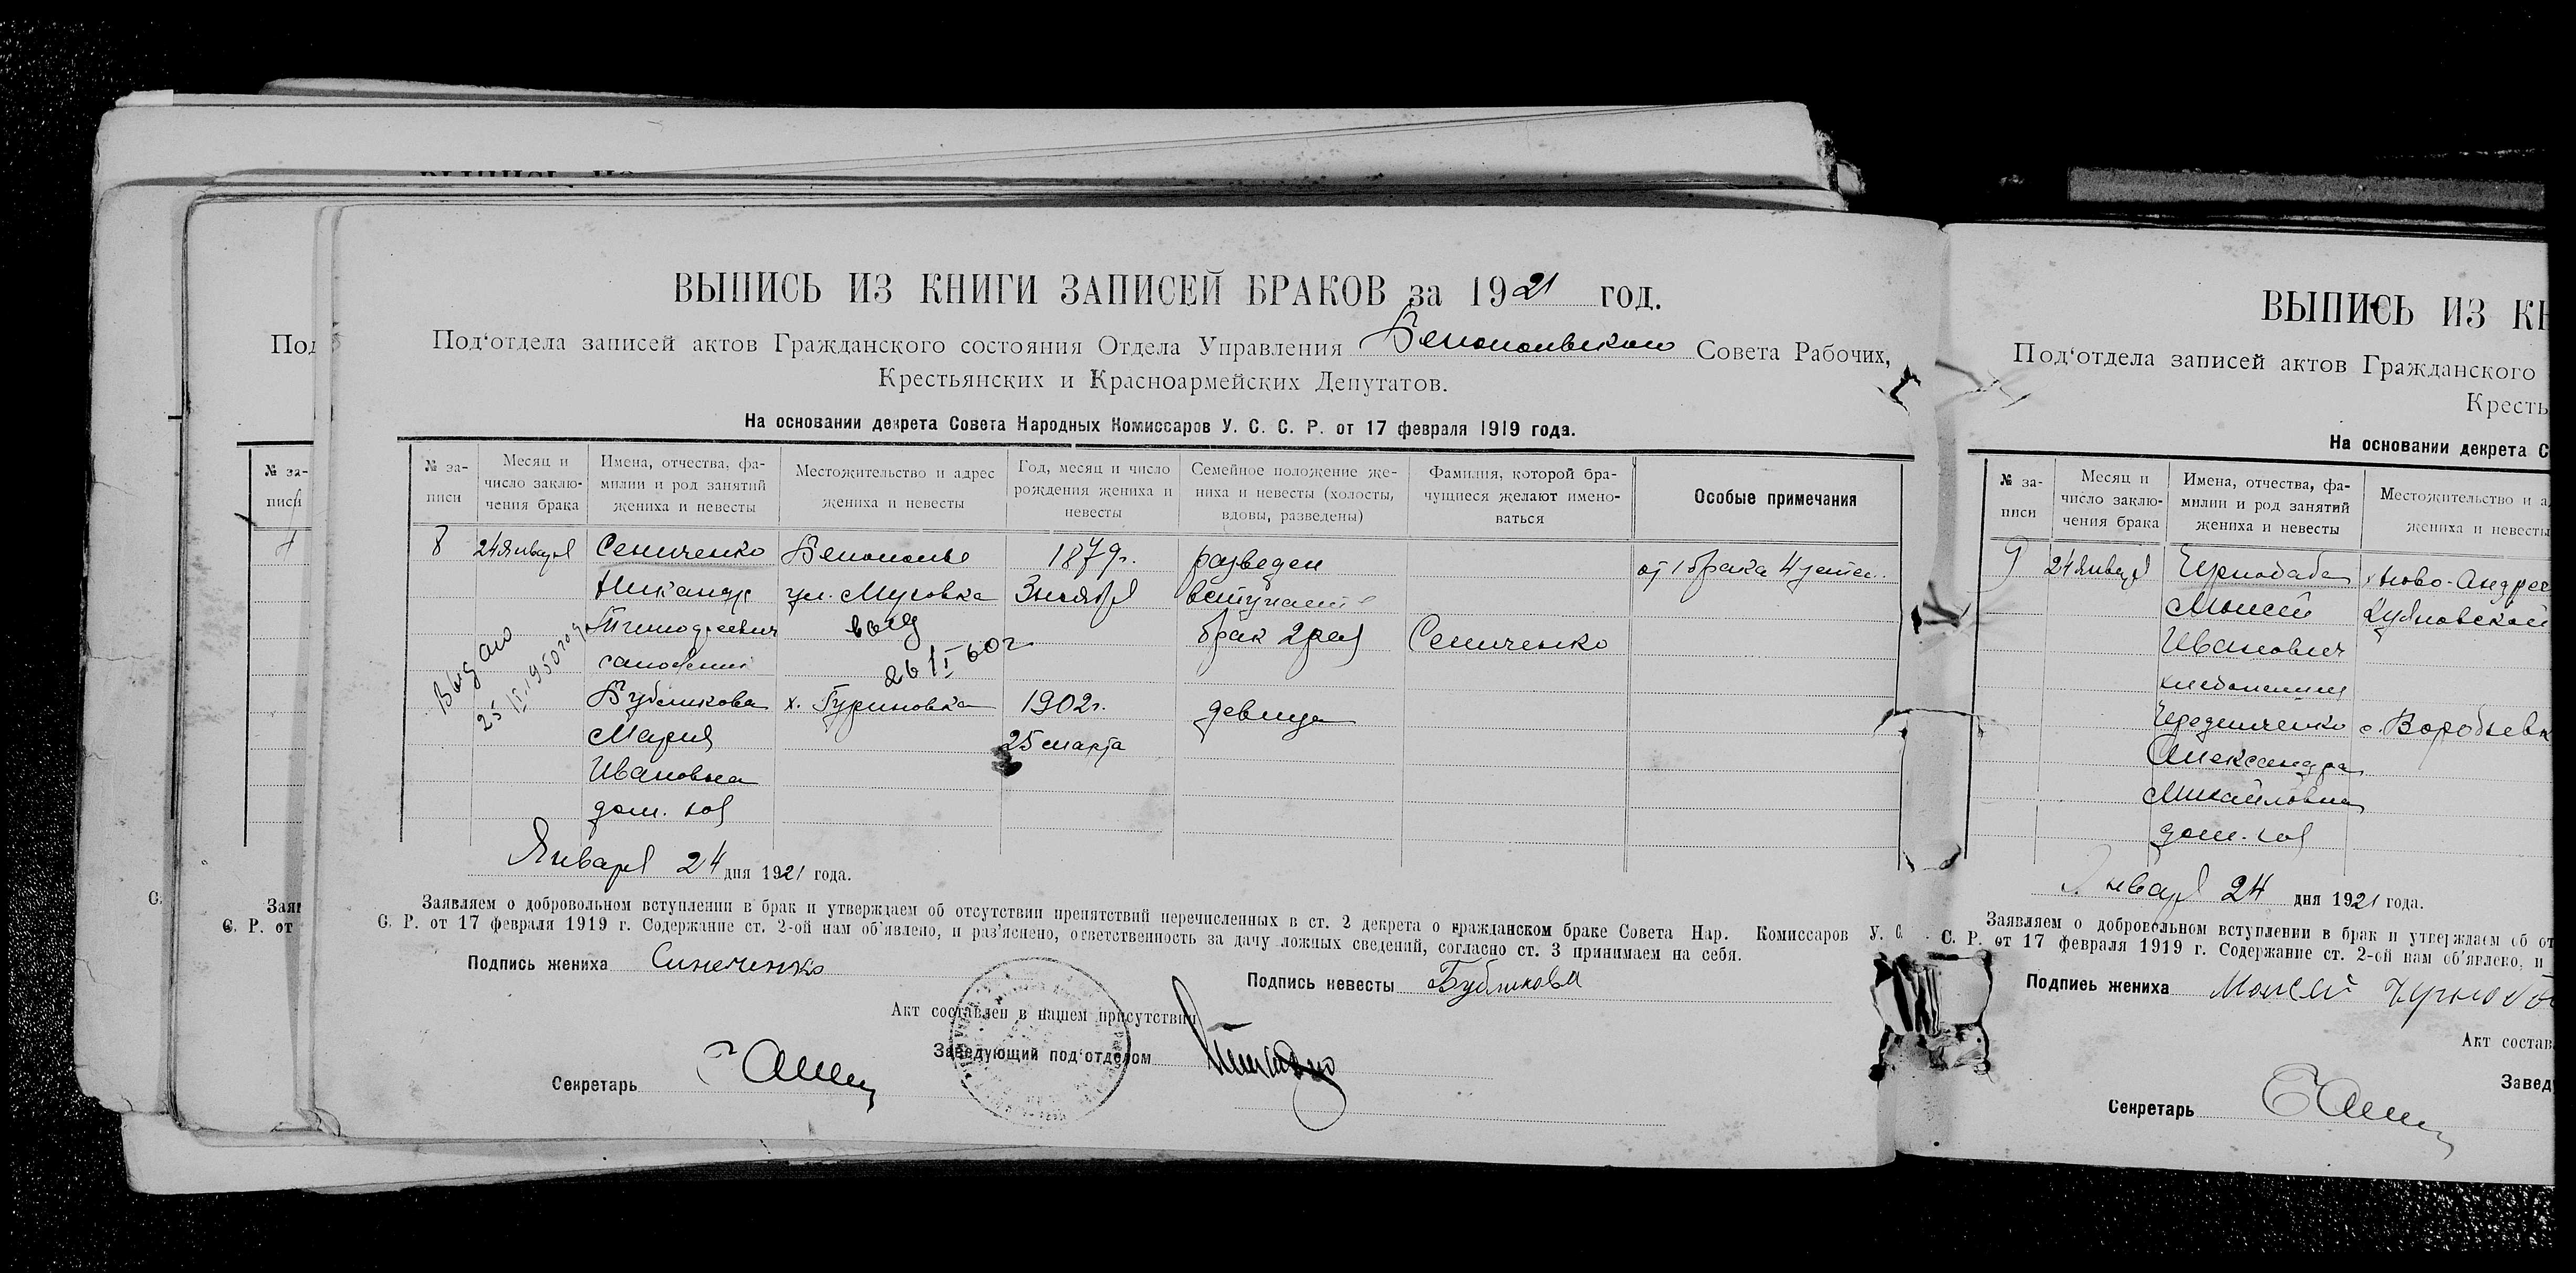 ВЫПИСЬ ИЗ КНИГИ ЗАПИСЕЙ БРАКОВ за 1921 год.
Под‘отдела записей актов Гражданского состояния Отдела Управления Белопольского Совета Рабочих,
Крестьянских и Красноармейских Депутатов.
На основании декрета Совета Народных Комиссаров У. С. С. Р. от 17 февраля 1919 года.
№ за-
писи
Месяц и
число заклю-
чения брака
Имена, отчества, фа-
милии и род занятий
жениха и невесты
Местожительство и адрес
жениха и невесты
Год, месяц и число
рождения жениха и
невесты
Семейное положение же-
ниха и невесты (холосты,
вдовы, разведены)
Фамилия, которой бра-
чущиеся желают имено-
ваться
Особые примечания
8 24 Января Сениченко Белополье 1879г. разведен от 1 брака 4 детей
Никандр ул. Муровка 3 ноября вступает
брак 2 раз Сениченко
выд
26 I 60г
Выдано
25 1950 года
Бубликова х. Гуриновка 1902г. девица
Мария 25 марта
Ивановна
дом. хоз
Января 24 дня 1921 года.
Заявляем о добровольном вступлении в брак и утверждаем об отсутствии препятствий перечисленных в ст. 2 декрета о гражданском браке Совета Нар. Комиссаров У. С.
С. Р. от 17 февраля 1919 г. Содержание ст. 2-ой нам об‘явлено, и раз‘яснено, ответственность за дачу ложных сведений, согласно ст. 3 принимаем на себя.
Подпись жениха Синеченко
Подпись невесты Бубликова
Акт составлен в нашем присутствии
Заведующий под‘отделом
Секретарь
ВЫПИСЬ ИЗ КН
Под‘отдела записей актов Гражданского
Кресть
На основании декрета С
№ за-
писи
Месяц и
число заклю-
чения брака
Имена, отчества, фа-
милии и род занятий
жениха и невесты
Местожительство и а
жениха и невесты
9 24 Января Чернобаба х Ново-Андрее
Моисей
Иванович
Чередниченко с. Воробьевк
Александра
Михайловна
дом. хоз
Января 24 дня 1921 года.
Заявляем о добровольном вступлении в брак и утверждаем об от
С. Р. от 17 февраля 1919 г. Содержание ст. 2-ой нам об‘явлено, и
Подпись жениха Моисей Черноба
Акт состав
Завед
Секретарь
Под
№ за-
писи
Заяв
С. Р. от